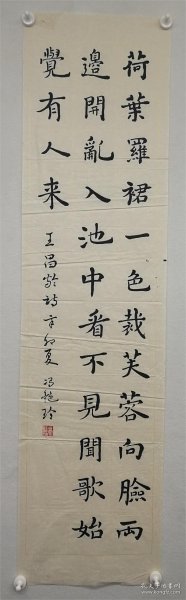 荷葉羅裙一色裁芙蓉向臉兩
邊開亂入池中看不見聞歌始
覺有人来
王昌齡詩辛卯夏